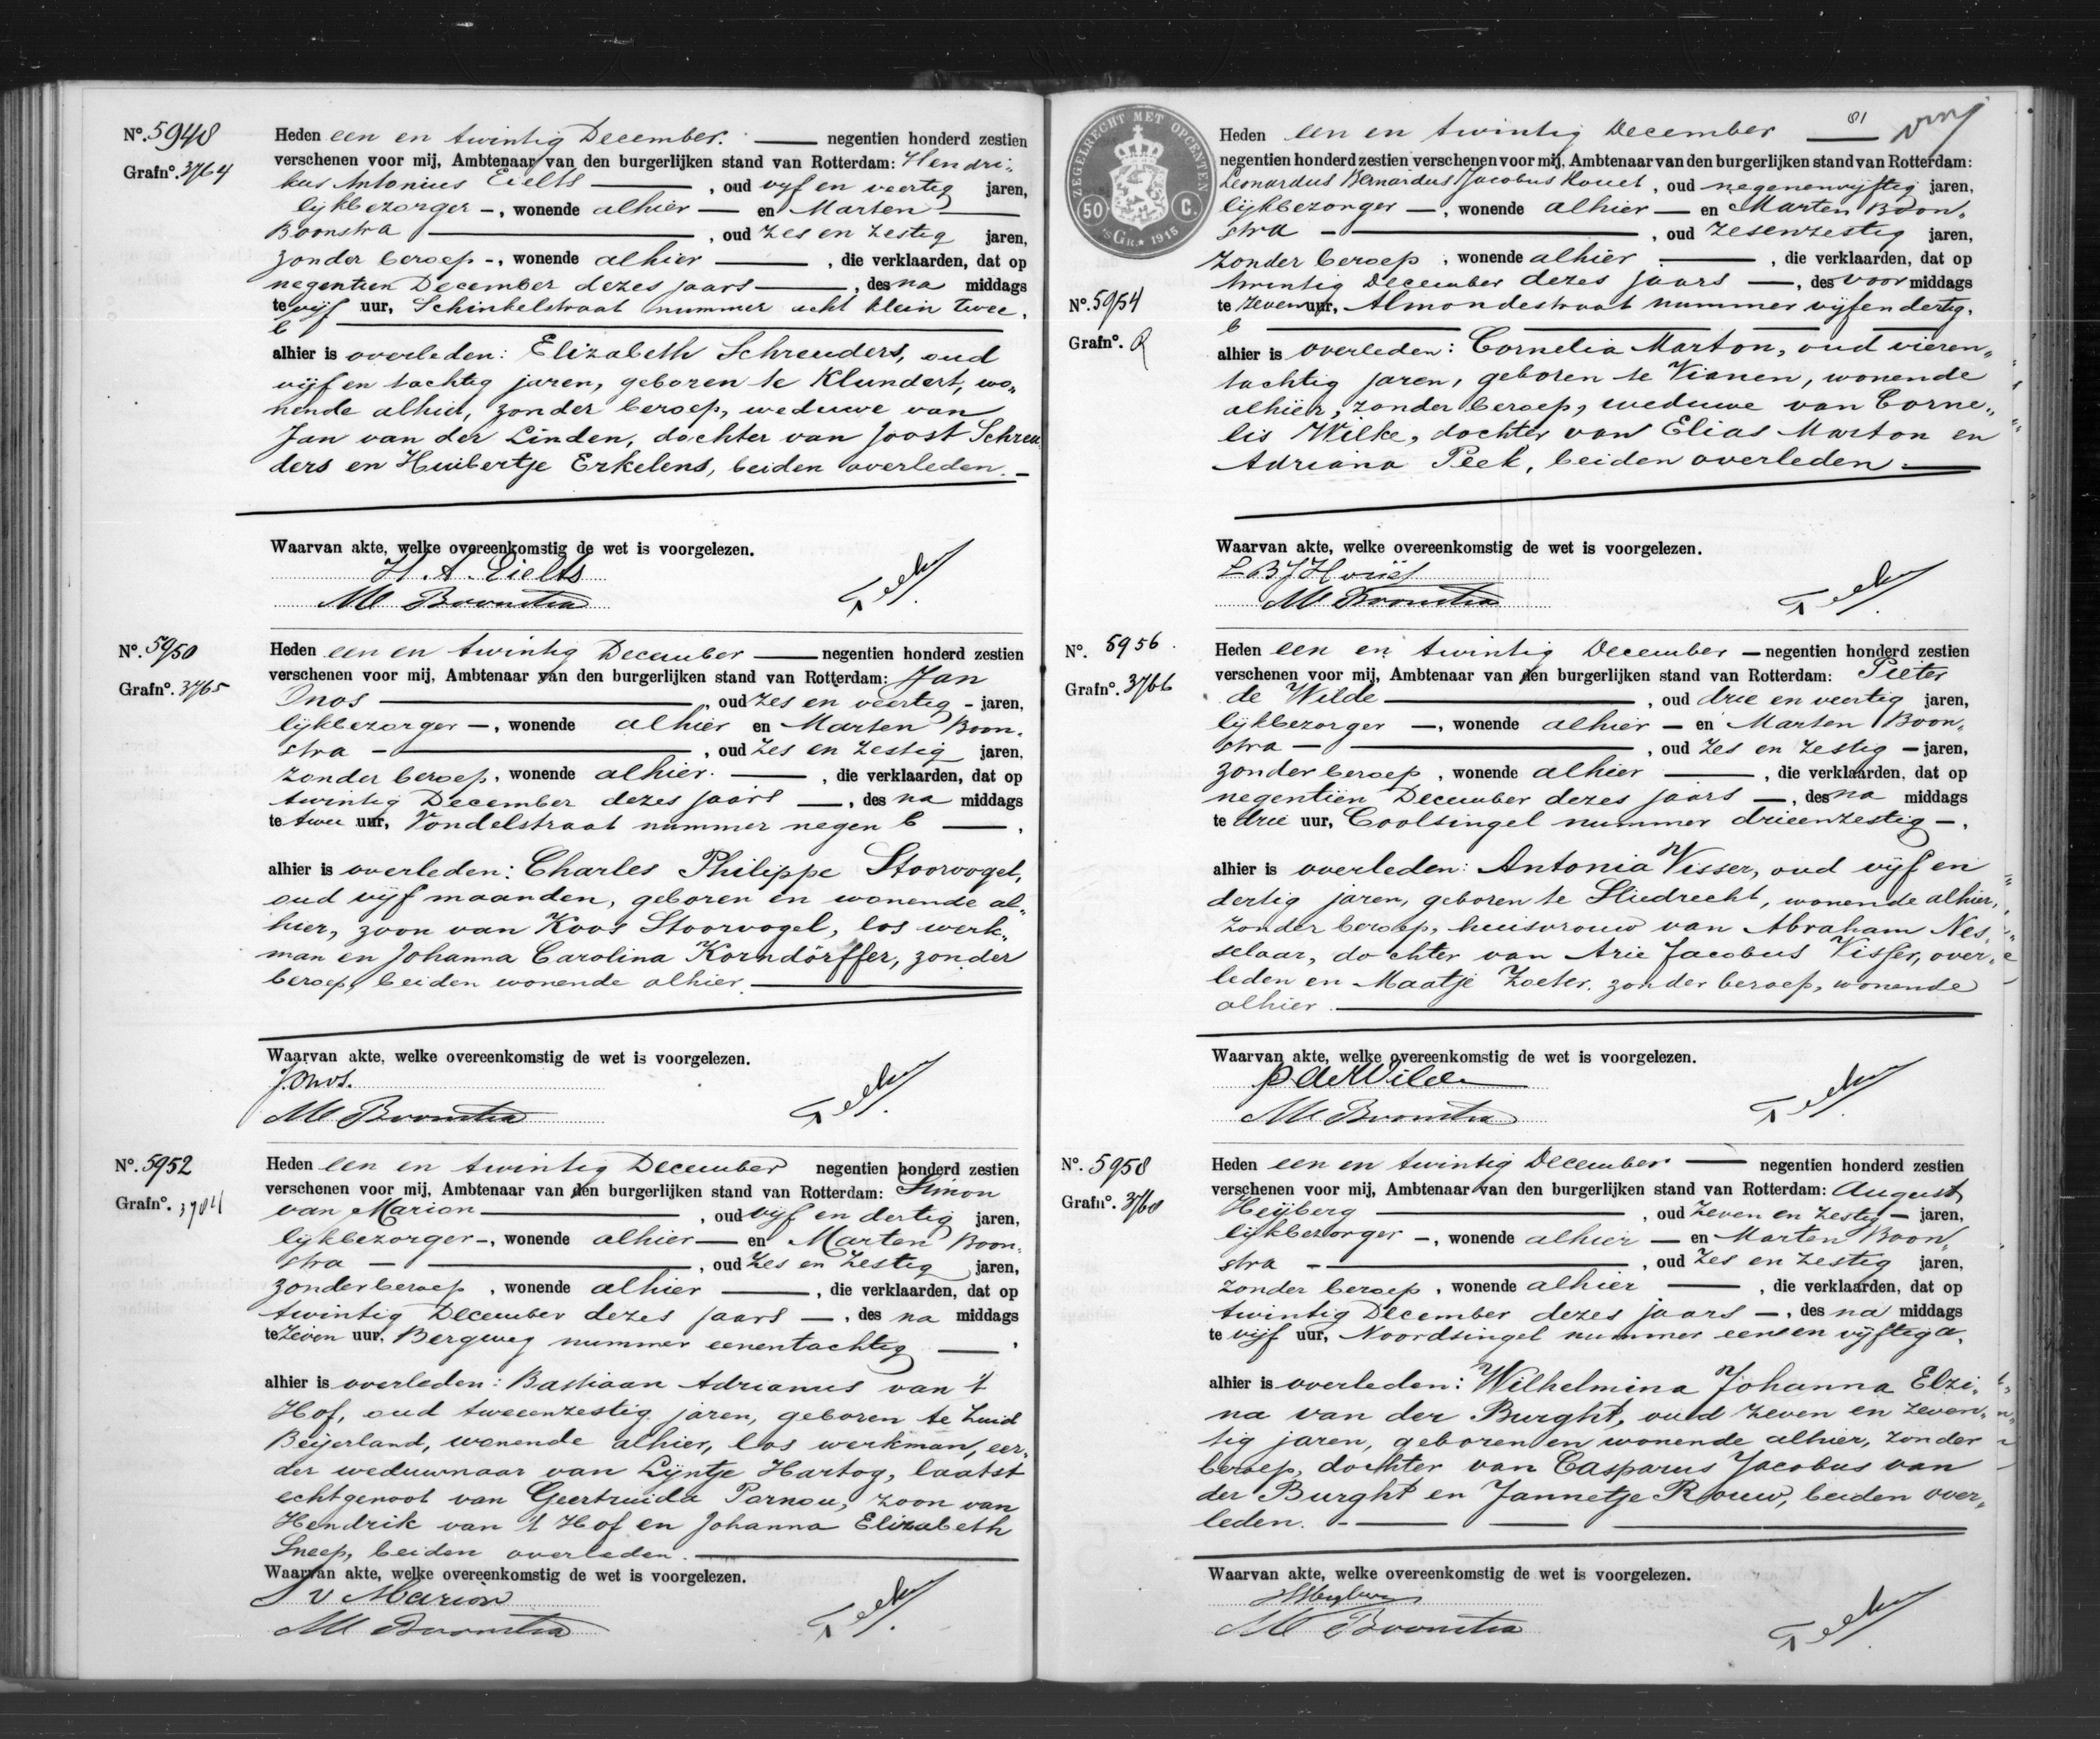 Nº. 5948
Grafnº. 3764
Heden een en twintig December. negentien honderd zestien
verschenen voor mij, Ambtenaar van den burgerlijken stand van Rotterdam: Hendri-
kus Antonius Eielts, oud vijf en veertig jaren,
lijkbezorger -, wonende alhier en Marten
Boonstra, oud zes en zestig jaren,
zonder beroep -, wonende alhier, die verklaarden, dat op
negentien December dezes jaars, des na middags
te vijf uur, Schinkelstraat nummer acht klein twee,
C
alhier is overleden: Elizabeth Schreuders, oud
vijf en tachtig jaren, geboren te Klundert, wo-
nende alhier, zonder beroep, weduwe van
Jan van der Linden, dochter van Joost Schreu
ders en Huibertje Erkelens, beiden overleden.
Waarvan akte, welke overeenkomstig de wet is voorgelezen.
H. A. Eielts
M Boonstra
Nº. 5950
Grafnº. 3765
Heden een en twintig December negentien honderd zestien
verschenen voor mij, Ambtenaar van den burgerlijken stand van Rotterdam: Jan
Onos, oud zes en veertig - jaren,
lijkbezorger -, wonende alhier en Marten Boon-
stra -, oud zes en zestig jaren,
zonder beroep, wonende alhier., die verklaarden, dat op
twintig December dezes jaars, des na middags
te twee uur, Vondelstraat nummer negen C,
alhier is overleden: Charles Philippe Stoorvogel,
oud vijf maanden, geboren en wonende al-
hier, zoon van Koos Stoorvogel, los werk-
man en Johanna Carolina Korndörffer, zonder
beroep, beiden wonende alhier.
Waarvan akte, welke overeenkomstig de wet is voorgelezen.
J. Onos.
M Boonstra
Nº. 5952
Grafnº.
Heden een en twintig December negentien honderd zestien
verschenen voor mij, Ambtenaar van den burgerlijken stand van Rotterdam: Simon
van Marion, oud vijf en dertig jaren,
lijkbezorger -, wonende alhier en Marten Boon-
stra -, oud zes en zestig jaren,
zonder beroep, wonende alhier, die verklaarden, dat op
twintig December dezes jaars, des na middags
te zeven uur, Bergweg nummer eenentachtig,
alhier is overleden: Bastiaan Adrianus van 't
Hof, oud tweeenzestig jaren, geboren te Zuid
Beijerland, wonende alhier, los werkman, eer-
der weduwnaar van Lijntje Hartog, laatst
echtgenoot van Geertruida Parnou, zoon van
Hendrik van 't Hof en Johanna Elizabeth
Sneep, beiden overleden.
Waarvan akte, welke overeenkomstig de wet is voorgelezen.
S v Marion
M Boonstra
81
ZEGELRECHT MET OPCENTEN
50 C.
'sGR. 1915
Nº. 5954
Grafnº. R
Heden een en twintig December
negentien honderd zestien verschenen voor mij, Ambtenaar van den burgerlijken stand van Rotterdam:
Leonardus Bernardus Jacobus Houët, oud negenenvijftig jaren,
lijkbezorger -, wonende alhier en Marten Boon-
stra -, oud zesenzestig jaren,
zonder beroep, wonende alhier, die verklaarden, dat op
twintig December dezes jaars, des voor middags
te zeven uur, Almondestraat nummer vijfendertig,
C
alhier is overleden: Cornelia Marton, oud vieren-
tachtig jaren, geboren te Vianen, wonende
alhier, zonder beroep, weduwe van Corne-
lis Wilke, dochter van Elias Marton en
Adriana Peek, beiden overleden.
Waarvan akte, welke overeenkomstig de wet is voorgelezen.
L B J Houët
M Boonstra
Nº. 5956
Grafnº. 3766
Heden een en twintig December negentien honderd zestien
verschenen voor mij, Ambtenaar van den burgerlijken stand van Rotterdam: Pieter
de Wilde, oud drie en veertig jaren,
lijkbezorger -, wonende alhier - en Marten Boon-
stra -, oud zes en zestig - jaren,
zonder beroep, wonende alhier, die verklaarden, dat op
negentien December dezes jaars, des na middags
te drie uur, Coolsingel nummer drieenzestig -,
alhier is overleden: Antonia Visser, oud vijf en
dertig jaren, geboren te Sliedrecht, wonende alhier,
zonder beroep, huisvrouw van Abraham Nes-
selaar, dochter van Arie Jacobus Visser, over-
leden en Maatje Zoeter, zonder beroep, wonende
alhier.
Waarvan akte, welke overeenkomstig de wet is voorgelezen.
P de Wilde
M Boonstra
Nº. 5958
Grafnº. 3760
Heden een en twintig December negentien honderd zestien
verschenen voor mij, Ambtenaar van den burgerlijken stand van Rotterdam: August
Heijberg, oud zeven en zestig - jaren,
lijkbezorger -, wonende alhier en Marten Boon-
stra -, oud zes en zestig jaren,
zonder beroep, wonende alhier, die verklaarden, dat op
twintig December dezes jaars, des na middags
te vijf uur, Noordsingel nummer eenen vijftig a,
alhier is overleden: Wilhelmina Johanna Elzi-
na van der Burght, oud zeven en zeven-
tig jaren, geboren en wonende alhier, zonder
beroep, dochter van Casparus Jacobus van
der Burght en Jannetje Rouw, beiden over-
leden.
Waarvan akte, welke overeenkomstig de wet is voorgelezen.
AHeyberg
M Boonstra